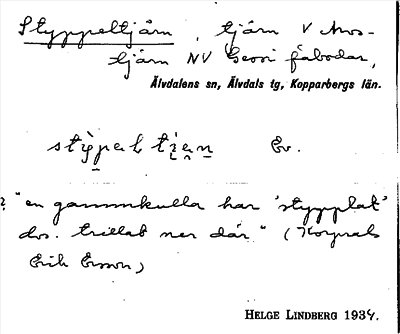 Styppeltjärn, tjärn V Mos-
tjärn NV Gessi fäbodar,
Älvdalens sn, Älvdals tg, Kopparbergs län.
Ev.
? "en gammkulla har 'stypplat'
dvs. trillat ner där" (Korprals
Erik Ersson)
HELGE LINDBERG 1934.